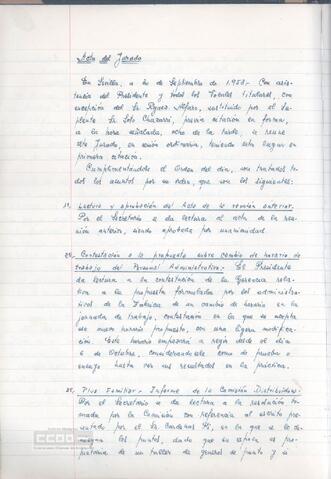 Acta del Jurado
En Sevilla, a 20 de Septiembre de 1958.- Con asis-
tencia del Presidente y todos los Vocales titulares, con
excepción del Sr. Reyes Alfaro, sustituido por el Su-
plente Sr. Soto Chazarri, previa citación en forma,
a la hora señalada, ocho de la tarde, se reune
este Jurado, en sesión ordinaria, teniendo ésta lugar en
primera citación.
Cumplimentándose el Orden del día, son tratados to-
dos los asuntos por su orden, que son los siguientes:
1º.- Lectura y aprobación del Acta de la reunión anterior.
Por el Secretario se da lectura al acta de la reu-
nión anterior, siendo aprobada por unanimidad.
2º.- Contestación a la propuesta sobre cambio de horario de
trabajo del Personal Administrativo.- El Presidente
da lectura a la contestación de la Gerencia rela-
tiva a la propuesta formulada por los administra-
tivos de la Fábrica de un cambio de horario en la
jornada de trabajo, contestación en la que se acepta
el nuevo horario propuesto, con una ligera modifica-
ción. Este horario empezará a regir desde el día
6 de Octubre, considerándosele como de prueba o
ensayo hasta ver sus resultados en la práctica.
3º.- Plus Familiar.- Informe de la Comisión Distribuidora.
Por el Secretario se da lectura a la resolución to-
mada por la Comisión con referencia al escrito presen-
tado por el Sr. Cárdenas, en la que se le de-
niegan los puntos, dado que su esposa es pro-
pietaria de un taller de géneros de punto y si
CCOO